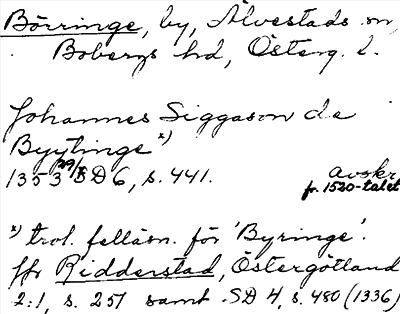 Börringe, by, Älvestads sn,
Bobergs hd, Österg. l.
Johannes Siggason de
Byytinge x)
1353 29/8 SD 6, s. 441. avskr.
fr. 1520-talet
x) trol. felläsn. för 'Byringe'.
Jfr Ridderstad, Östergötland
2:1, s. 251 samt SD 4, s. 480 (1336)